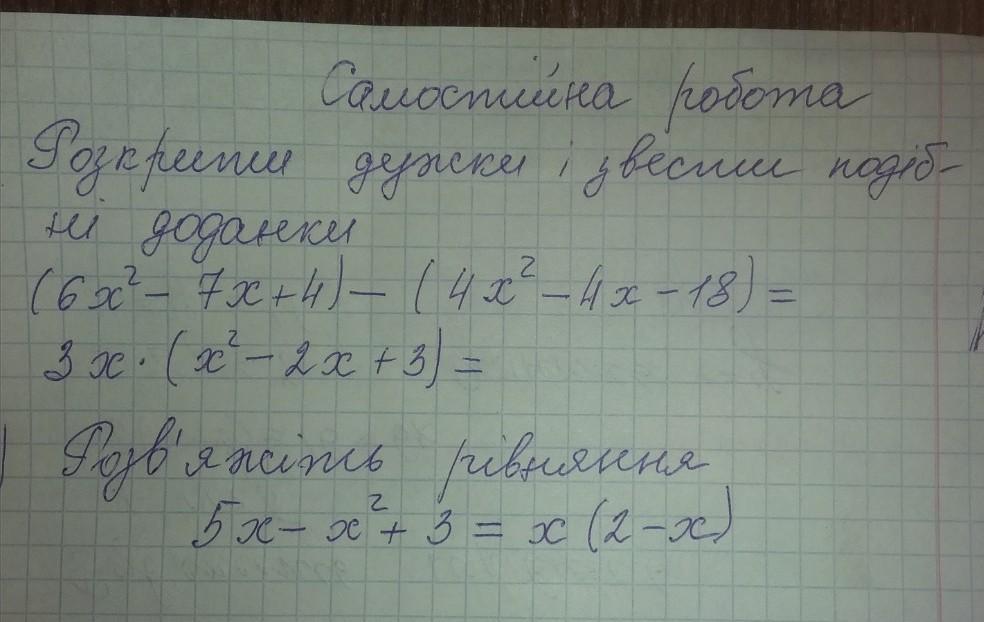 Самостійна робота
Розкрити дужки і звести подіб-
ні доданки
(6x² - 7x + 4) - (4x² - 4x - 18) =
3x · (x² - 2x + 3) =
Розв'яжіть рівняння
5x - x² + 3 = x (2 - x)